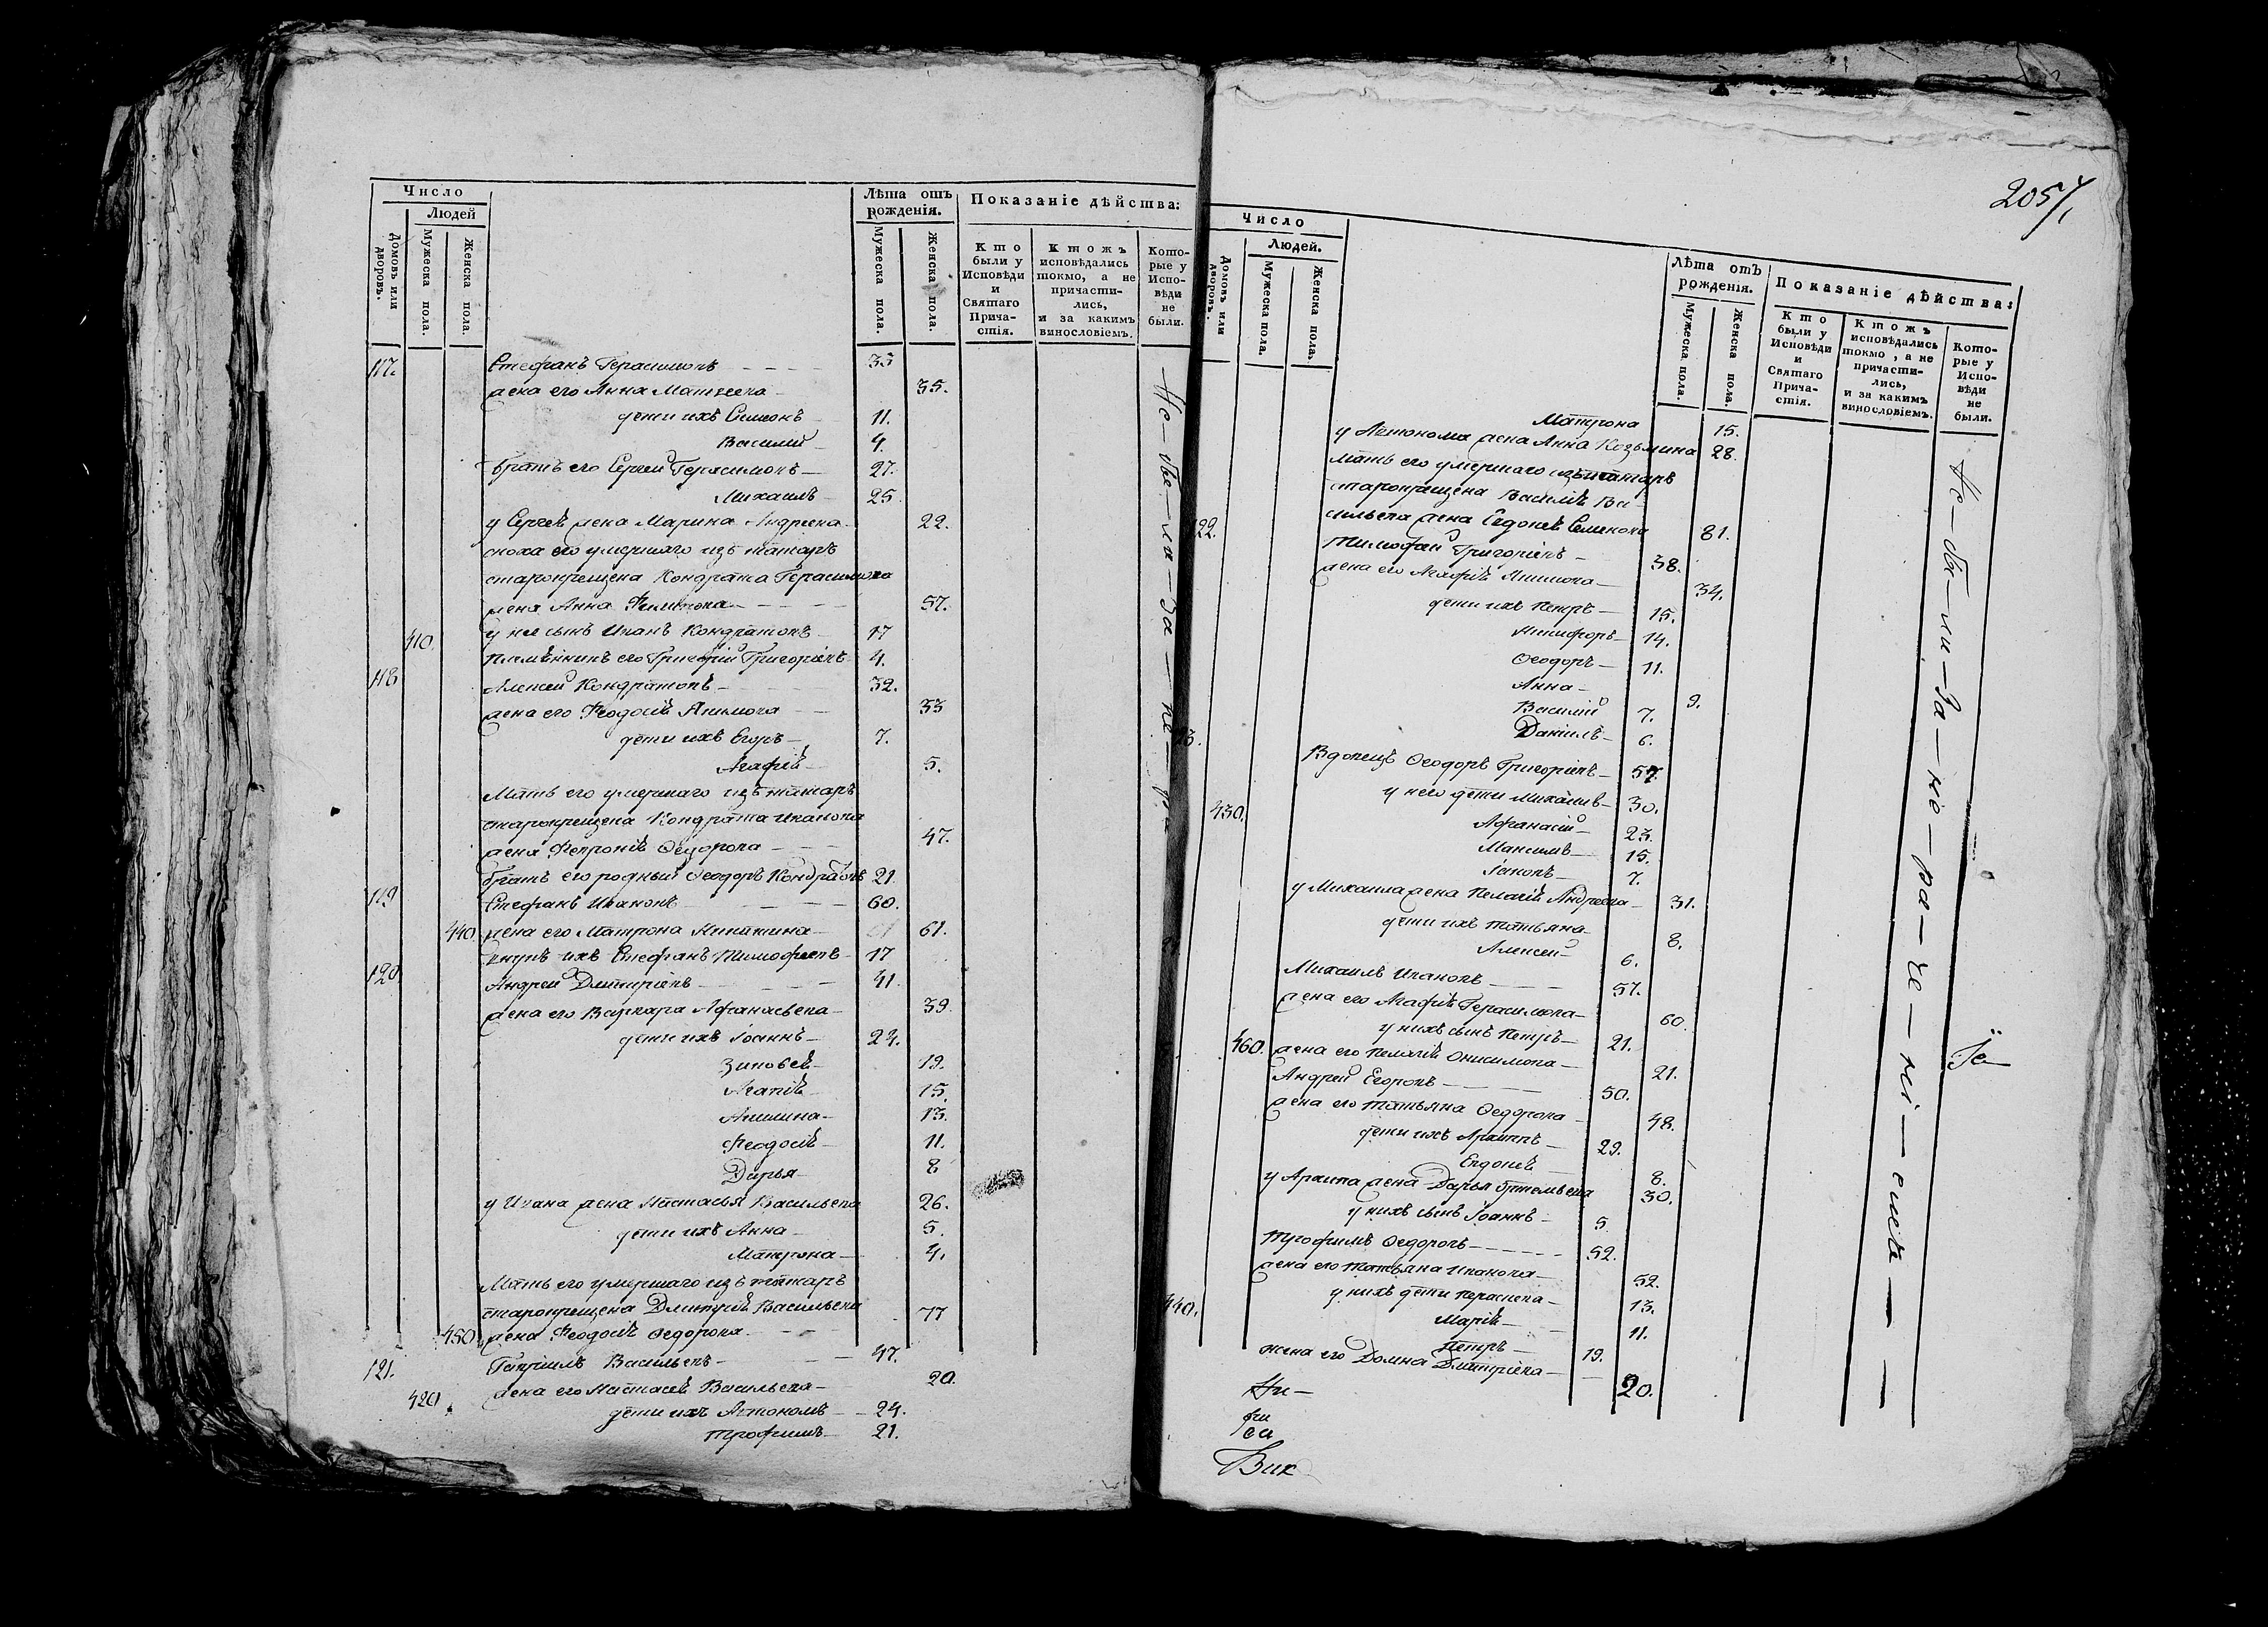 Число
Людей
Домовъ или дворовъ.
Мужеска пола.
Женска пола.
Лѣта отъ рожденія.
Мужеска пола.
Женска пола.
Показаніе дѣйства:
Кто были у Исповѣди и Святаго Причастія.
Ктожъ исповѣдались токмо, а не причастились, и за какимъ винословіемъ.
Которые у Исповѣди не были.
117. Стефанъ Герасимовъ 33
жена его Анна Матвеева 35.
дети ихъ Симионъ 11.
Василий 4.
братъ его Сергей Герасимовъ 27.
Михаилъ 25
у Сергеѣ жена Марина Андреева 22.
сноха его умершаго изъ татаръ
старокрещена Кондрата Герасимова
жена Анна 57.
410. у нее сынъ Иванъ Кондратовъ 17
племѣнникъ его Григорий Григорієвъ 4.
118 Алексей Кондратовъ 32.
жена его Феодосиѣ Якимова 33
дети ихъ Егоръ 7.
Агафиѣ 5.
Мать его умершаго изъ татаръ
старокрещена Кондрата Иванова
жена Феврониѣ Федорова 47.
братъ его родный Феодоръ Кондратовъ 21
119 Стефанъ Ивановъ 60.
440 жена его Матрона Никитина 61.
внукъ ихъ Стефанъ Тимофеевъ 17
120 Андрей Дмитріевъ 41.
жена его Варвара Афанасьева 39
дети ихъ Іоаннъ 24.
Зиновеѣ 19.
Агапиѣ 15.
Акилина 13.
Феодосиѣ 11.
Дарья 8
у Ивана жена Настасья Васильева 26.
дети ихъ Анна 5.
Матрона 4.
Мать его умершаго изъ татаръ
старокрещена Дмитриѣ Васильева
450 жена Феодосиѣ Федорова 77
121. Гавриилъ Васильевъ 47.
420 жена его Настасеѣ Васильева 20.
дети ихъ Автономъ 24.
Трофимъ 21.
2057.
Число
Людей.
Домовъ или дворовъ.
Мужеска пола.
Женска пола.
Лѣта отъ рожденія.
Мужеска пола.
Женска пола.
Показаніе дѣйства:
Кто были у Исповѣди и Святаго Причастія.
Ктожъ исповѣдались токмо, а не причастились, и за какимъ винословіемъ.
Которые у Исповѣди не были.
Матрона 15.
у Автонома жена Анна Козьмина 28.
мать его умершаго изъ татаръ
старокрещена Василиѣ Ва-
сильева жена Евдокеѣ Семенова 81.
122. Тимофей Григоріевъ 38.
жена его Агафиѣ Якимова 34.
дети ихъ Петръ 15.
Никифоръ 14.
Феодоръ 11.
Анна 9.
Василий 7.
Даниилъ 6.
Вдовецъ Феодоръ Григоріевъ 57.
у него дети Михаилъ 30.
430. Афанасий 23.
Максимъ 15.
7.
у Михаила жена Пелагиѣ Андреева 31.
дети ихъ Татьяна 8.
Алексей 6.
Михаилъ Ивановъ 57.
жена его Агафиѣ Герасимова 60.
у нихъ сынъ Петръ 21.
460. жена его Пелагиѣ Онисимова 21.
Андрей Егоровъ 50.
жена его Татьяна Федорова 48.
дети ихъ Архипъ 29.
Евдокеѣ 8.
у Архипа жена Дарья Артемьева 30.
у нихъ сынъ Іоаннъ 5
Трофимъ Федоровъ 52.
жена его Татьяна Иванова 52.
440. у нихъ дети Парасковa 13.
Мариѣ 11.
Петръ 19.
жена его Домна Дмитріева 20.
Не-бы-ли-за-не-ра-че-ні-емъ